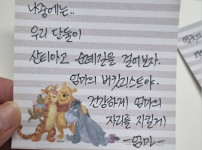 나중에는..
우리 단둘이
산티아고 순례길을 걸어보자.
엄마의 버킷리스트야.
건강하게 엄마의
자리를 지킬게!
-엄마-